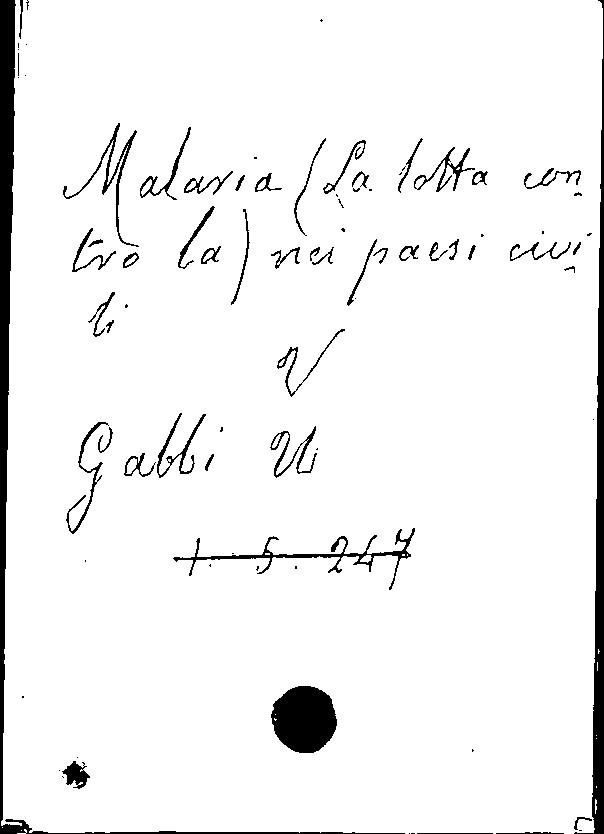 Malaria (La lotta con
tro la) nei paesi civi
li
V
Gabbi U
1. 5. 247